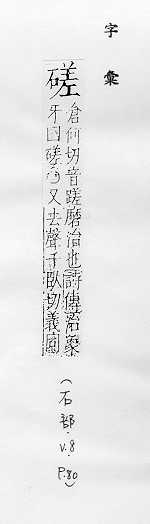 字彙
磋
倉何切音蹉磨治也詩傳治象
牙曰磋○又去聲千臥切義同
(石部.V.8
P.80)